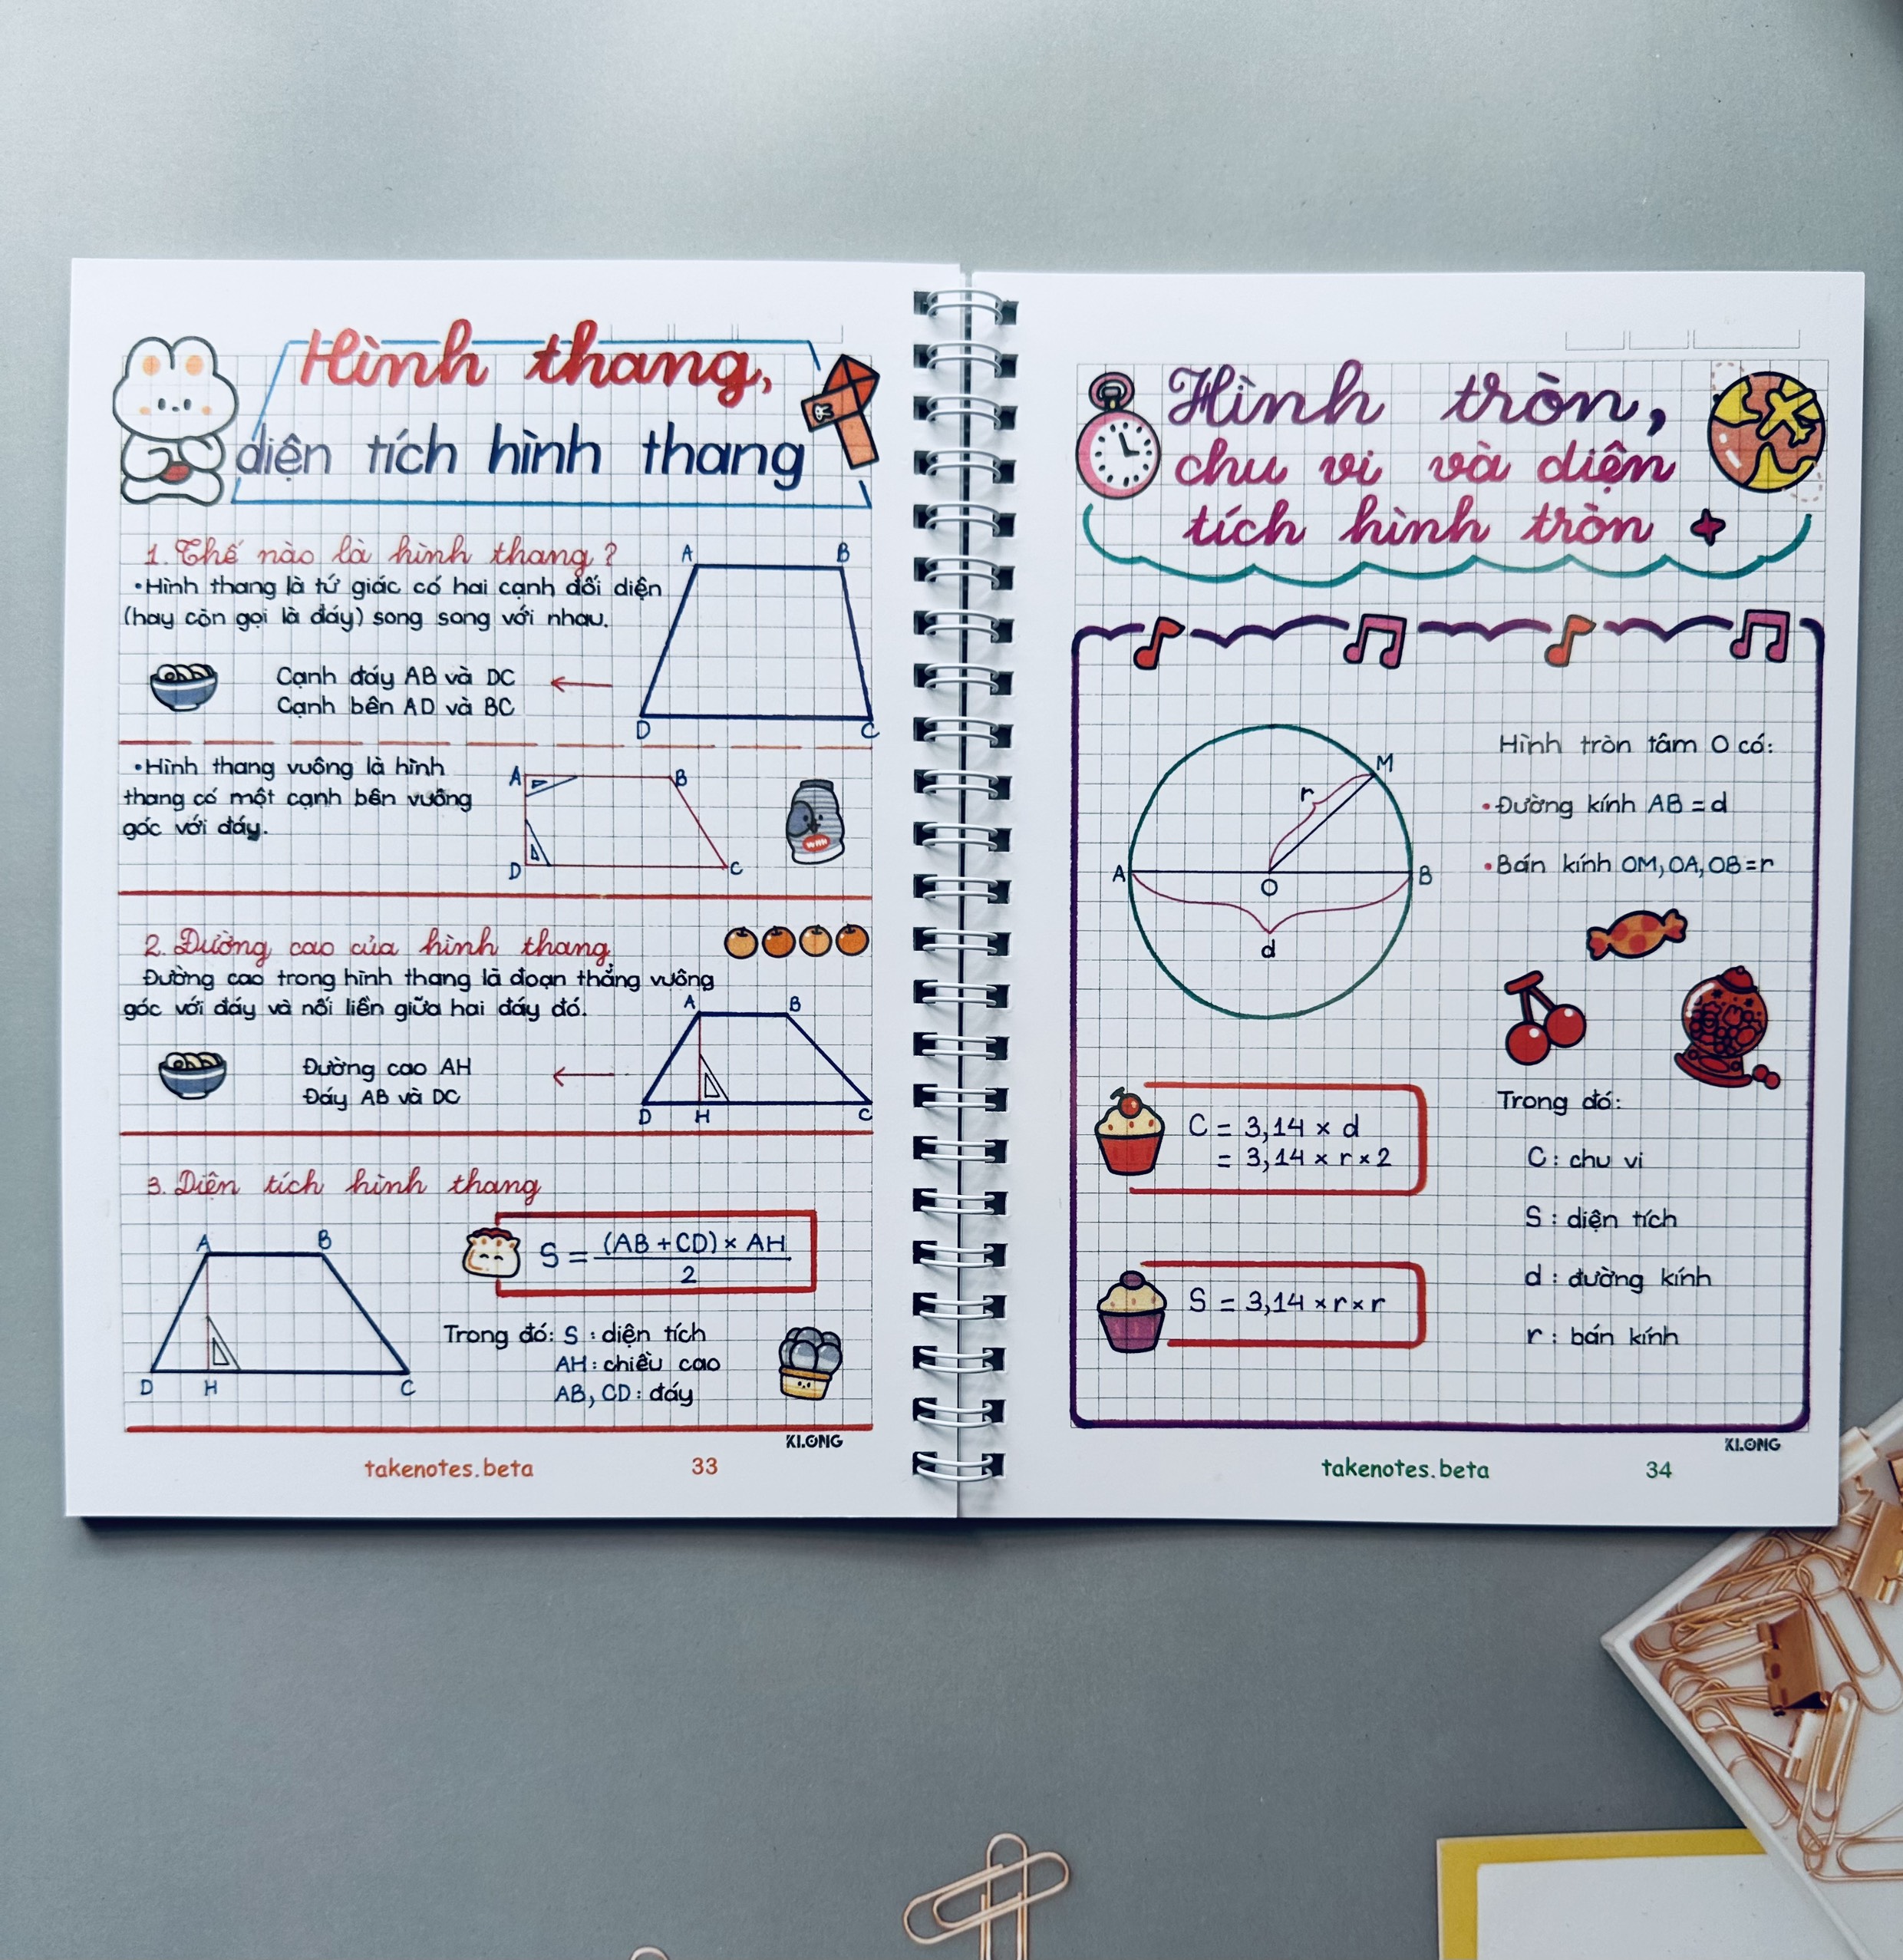 Hình thang,
diện tích hình thang
1. Thế nào là hình thang?
•Hình thang là tứ giác có hai cạnh đối diện
(hay còn gọi là đáy) song song với nhau.
A B
Cạnh đáy AB và DC
Cạnh bên AD và BC
D C
•Hình thang vuông là hình
thang có một cạnh bên vuông
góc với đáy.
A B
D C
2. Đường cao của hình thang
Đường cao trong hình thang là đoạn thẳng vuông
góc với đáy và nối liền giữa hai đáy đó.
A B
Đường cao AH
Đáy AB và DC
D H C
3. Diện tích hình thang
A B
S = (AB + CD) × AH
2
Trong đó: S : diện tích
AH : chiều cao
AB, CD : đáy
D H C
KLONG
takenotes.beta 33
Hình tròn,
chu vi và diện
tích hình tròn
M
r
A O B
d
Hình tròn tâm O có:
•Đường kính AB = d
•Bán kính OM, OA, OB = r
C = 3,14 × d
= 3,14 × r × 2
S = 3,14 × r × r
Trong đó:
C : chu vi
S : diện tích
d : đường kính
r : bán kính
KLONG
takenotes.beta 34